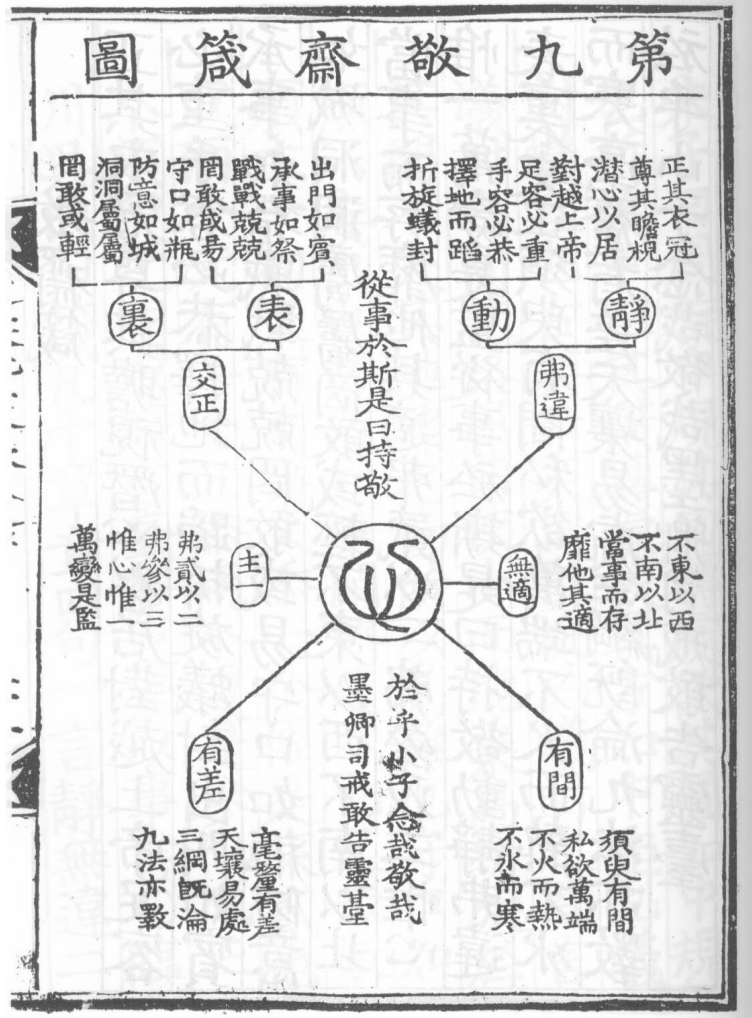 第九敬齋箴圖
正其衣冠
尊其瞻視
潛心以居
對越上帝
足容必重
手容必恭
擇地而蹈
折旋蟻封
靜
動
弗違
出門如賓
承事如祭
戰戰兢兢
罔敢或易
守口如瓶
防意如城
洞洞屬屬
罔敢或輕
表
裏
交正
從事於斯是曰持敬
心
不東以西
不南以北
當事而存
靡他其適
無適
主一
弗貳以二
弗參以三
惟心惟一
萬變是監
有間
須臾有間
私欲萬端
不火而熱
不氷而寒
有差
毫釐有差
天壤易處
三綱旣淪
九法亦斁
於乎小子念哉敬哉
墨卿司戒敢告靈臺